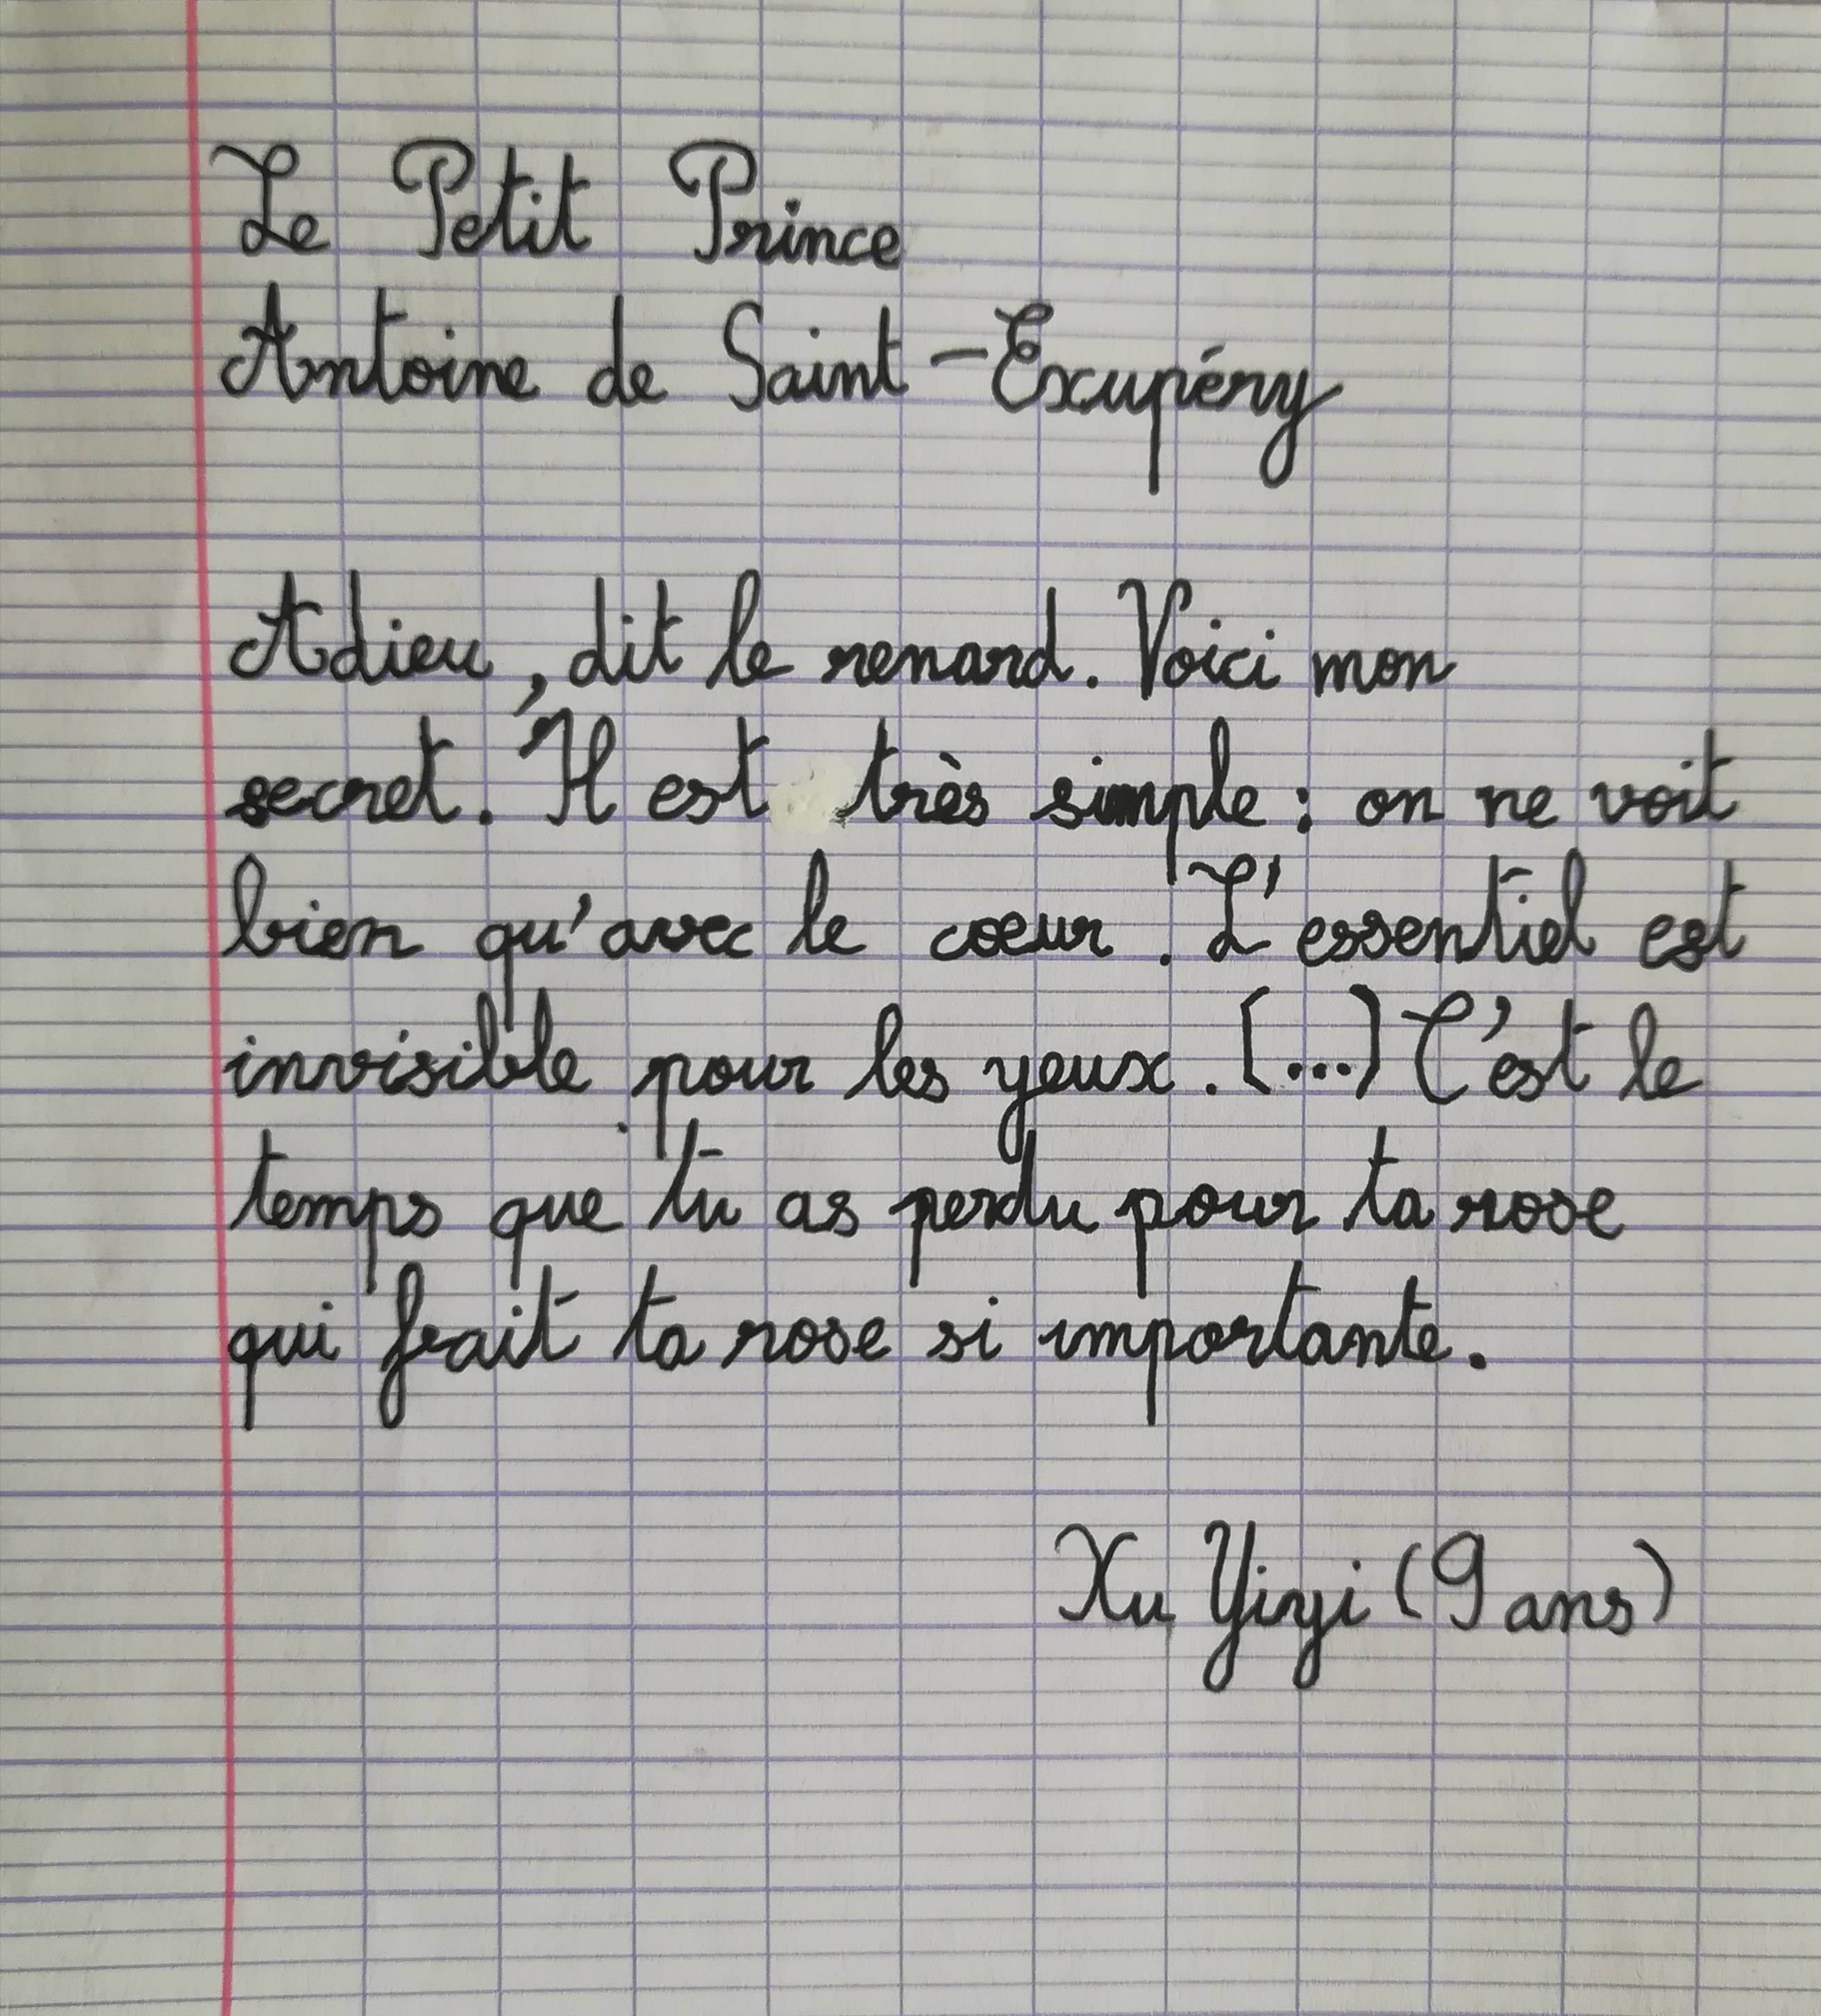 Le Petit Prince
Antoine de Saint-Exupéry
Adieu, dit le renard. Voici mon
secret. Il est très simple : on ne voit
bien qu'avec le coeur. L'essentiel est
invisible pour les yeux. (...) C'est le
temps que tu as perdu pour ta rose
qui fait ta rose si importante.
Xu Yiyi (9 ans)